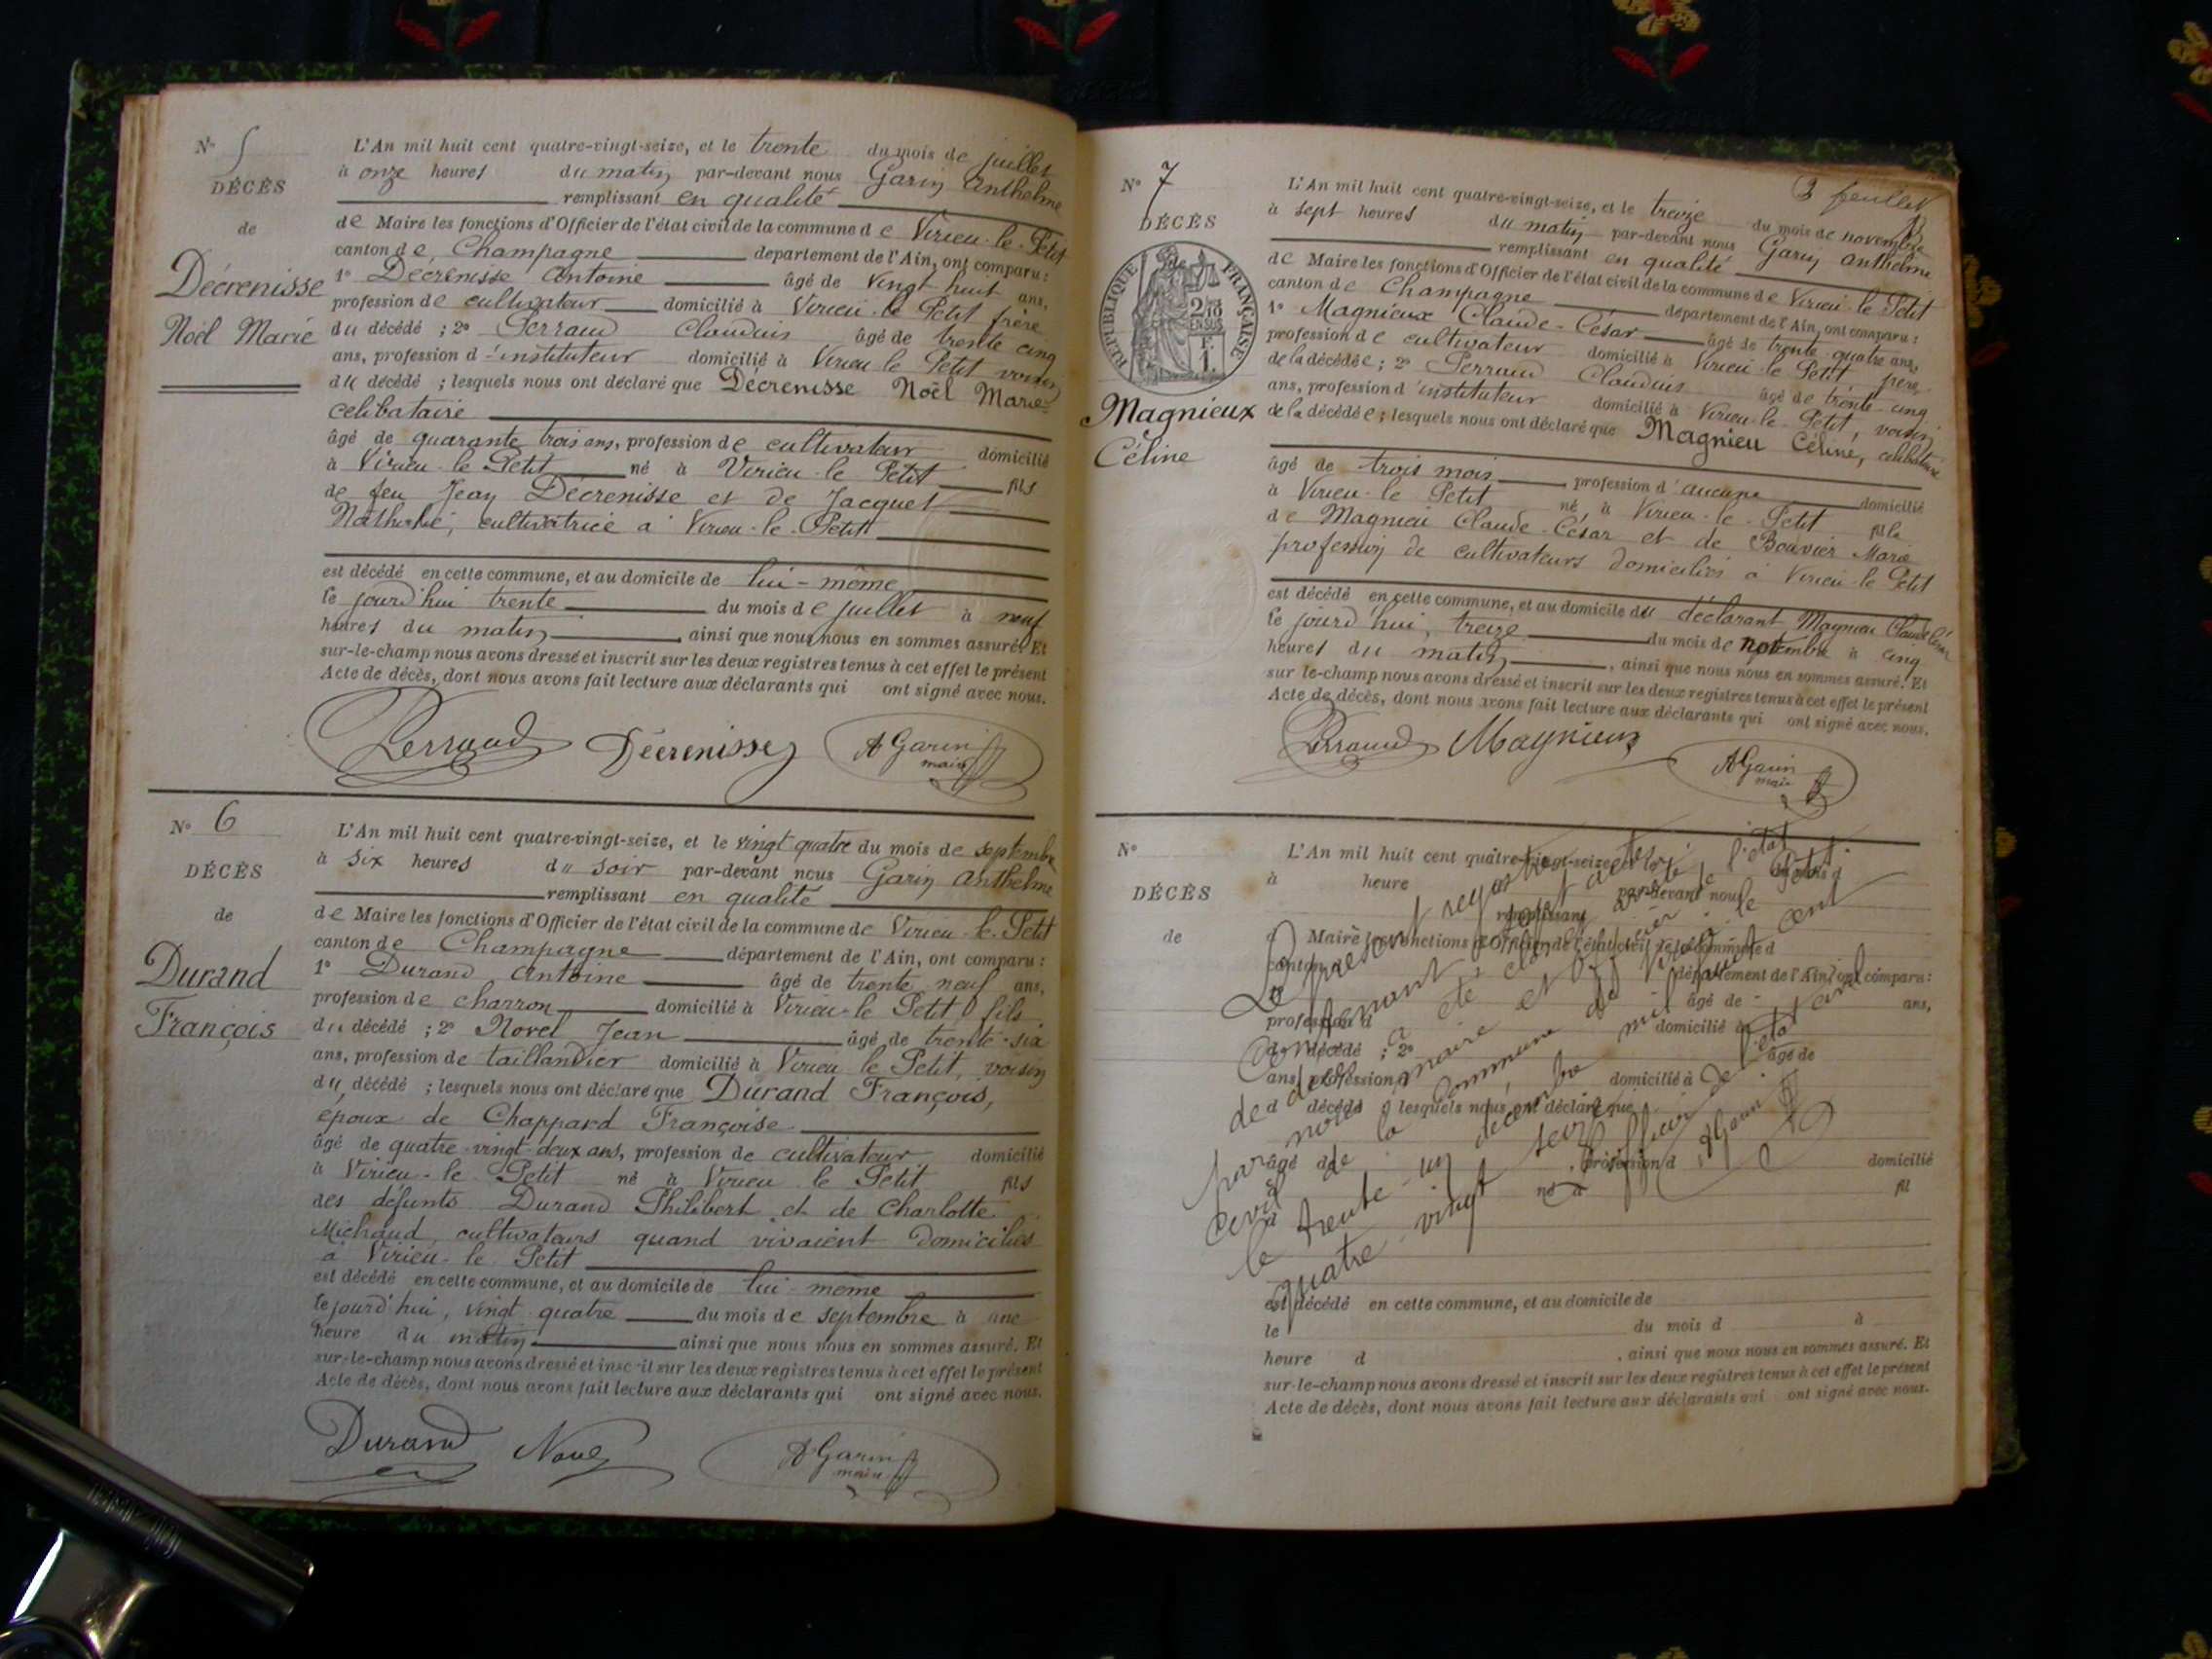 N° 5
DÉCÈS
de
Décrenisse
Noël Marie
L'An mil huit cent quatre-vingt-seize, et le trente du mois de juillet
à onze heures du matin par-devant nous Garin Anthelme
remplissant en qualité
de Maire les fonctions d'Officier de l'état civil de la commune de Virieu-le-Petit
canton de Champagne département de l'Ain, ont comparu :
1° Décrenisse Antoine âgé de vingt huit ans,
profession de cultivateur domicilié à Virieu-le-Petit frère
du décédé ; 2° Perraud Claudius âgé de trente cinq
ans, profession d'instituteur domicilié à Virieu le Petit voisin
du décédé ; lesquels nous ont déclaré que Décrenisse Noël Marie
célibataire
âgé de quarante trois ans, profession de cultivateur domicilié
à Virieu-le-Petit né à Virieu-le-Petit fils
de feu Jean Décrenisse et de Jacquet
cultivatrice à Virieu-le-Petit
est décédé en cette commune, et au domicile de lui-même
le jourd'hui trente du mois de juillet à neuf
heures du matin, ainsi que nous nous en sommes assuré. Et
sur-le-champ nous avons dressé et inscrit sur les deux registres tenus à cet effet le présent
Acte de décès, dont nous avons fait lecture aux déclarants qui ont signé avec nous.
Perraud Décrenisse A Garin
maire
N° 6
DÉCÈS
de
Durand
François
L'An mil huit cent quatre-vingt-seize, et le vingt quatre du mois de septembre
à six heures du soir par-devant nous Garin Anthelme
remplissant en qualité
de Maire les fonctions d'Officier de l'état civil de la commune de Virieu-le-Petit
canton de Champagne département de l'Ain, ont comparu :
1° Durand Antoine âgé de trente neuf ans,
profession de charron domicilié à Virieu-le-Petit fils
du décédé ; 2° Norel Jean âgé de trente-six
ans, profession de taillandier domicilié à Virieu le Petit, voisin
du décédé ; lesquels nous ont déclaré que Durand François,
époux de Chappard Françoise
âgé de quatre-vingt-deux ans, profession de cultivateur domicilié
à Virieu-le-Petit né à Virieu le Petit fils
des défunts Durand Philibert et de Charlotte
Michaud, cultivateurs quand vivaient domiciliés
à Virieu-le-Petit
est décédé en cette commune, et au domicile de lui-même
le jourd'hui, vingt quatre du mois de septembre à une
heure du matin ainsi que nous nous en sommes assuré. Et
sur-le-champ nous avons dressé et inscrit sur les deux registres tenus à cet effet le présent
Acte de décès, dont nous avons fait lecture aux déclarants qui ont signé avec nous.
Durand A Garin
maire
3 feuillet
N° 7
DÉCÈS
de
RÉPUBLIQUE FRANÇAISE
2/10
EN SUS
Magnieux
Céline
L'An mil huit cent quatre-vingt-seize, et le treize du mois de novembre
à sept heures du matin par-devant nous Garin Anthelme
remplissant en qualité
de Maire les fonctions d'Officier de l'état civil de la commune de Virieu-le-Petit
canton de Champagne département de l'Ain, ont comparu :
1° Magnieux Claude-César âgé de trente-quatre ans,
profession de cultivateur domicilié à Virieu-le-Petit père
de la décédée ; 2° Perraud Claudius âgé de trente cinq
ans, profession d'instituteur domicilié à Virieu-le-Petit, voisin
de la décédée ; lesquels nous ont déclaré que Magnieu Céline, célibataire
âgé de trois mois, profession d'aucune domicilié
à Virieu-le-Petit né à Virieu-le-Petit fille
de Magnieu Claude-César et de Bouvier Marie
profession de cultivateurs domiciliés à Virieu-le-Petit
est décédé en cette commune, et au domicile du déclarant Magnieu Claude César
le jourd'hui, treize du mois de novembre à cinq
heures du matin, ainsi que nous nous en sommes assuré. Et
sur-le-champ nous avons dressé et inscrit sur les deux registres tenus à cet effet le présent
Acte de décès, dont nous avons fait lecture aux déclarants qui ont signé avec nous.
Perraud Magnieux A Garin
maire
N°
DÉCÈS
de
L'An mil huit cent quatre-vingt-seize, et le du mois d
à heure par-devant nous
remplissant
d Maire les fonctions d'Officier de l'état civil de la commune d
canton d département de l'Ain, ont comparu :
1° âgé de ans,
profession d domicilié à
d décédé ; 2° âgé de
ans, profession d domicilié à
d décédé ; lesquels nous ont déclaré que
âgé de , profession d domicilié
à né à fil
est décédé en cette commune, et au domicile de
le du mois d à
heure d , ainsi que nous nous en sommes assuré. Et
sur-le-champ nous avons dressé et inscrit sur les deux registres tenus à cet effet le présent
Acte de décès, dont nous avons fait lecture aux déclarants qui ont signé avec nous.
Le présent registre
contenant sept actes
de décès a été clos et arrêté
par nous maire et officier de l'état
civil de la commune de Virieu le Petit
le trente-un décembre mil huit cent
quatre-vingt seize
L'officier de l'état civil
A Garin